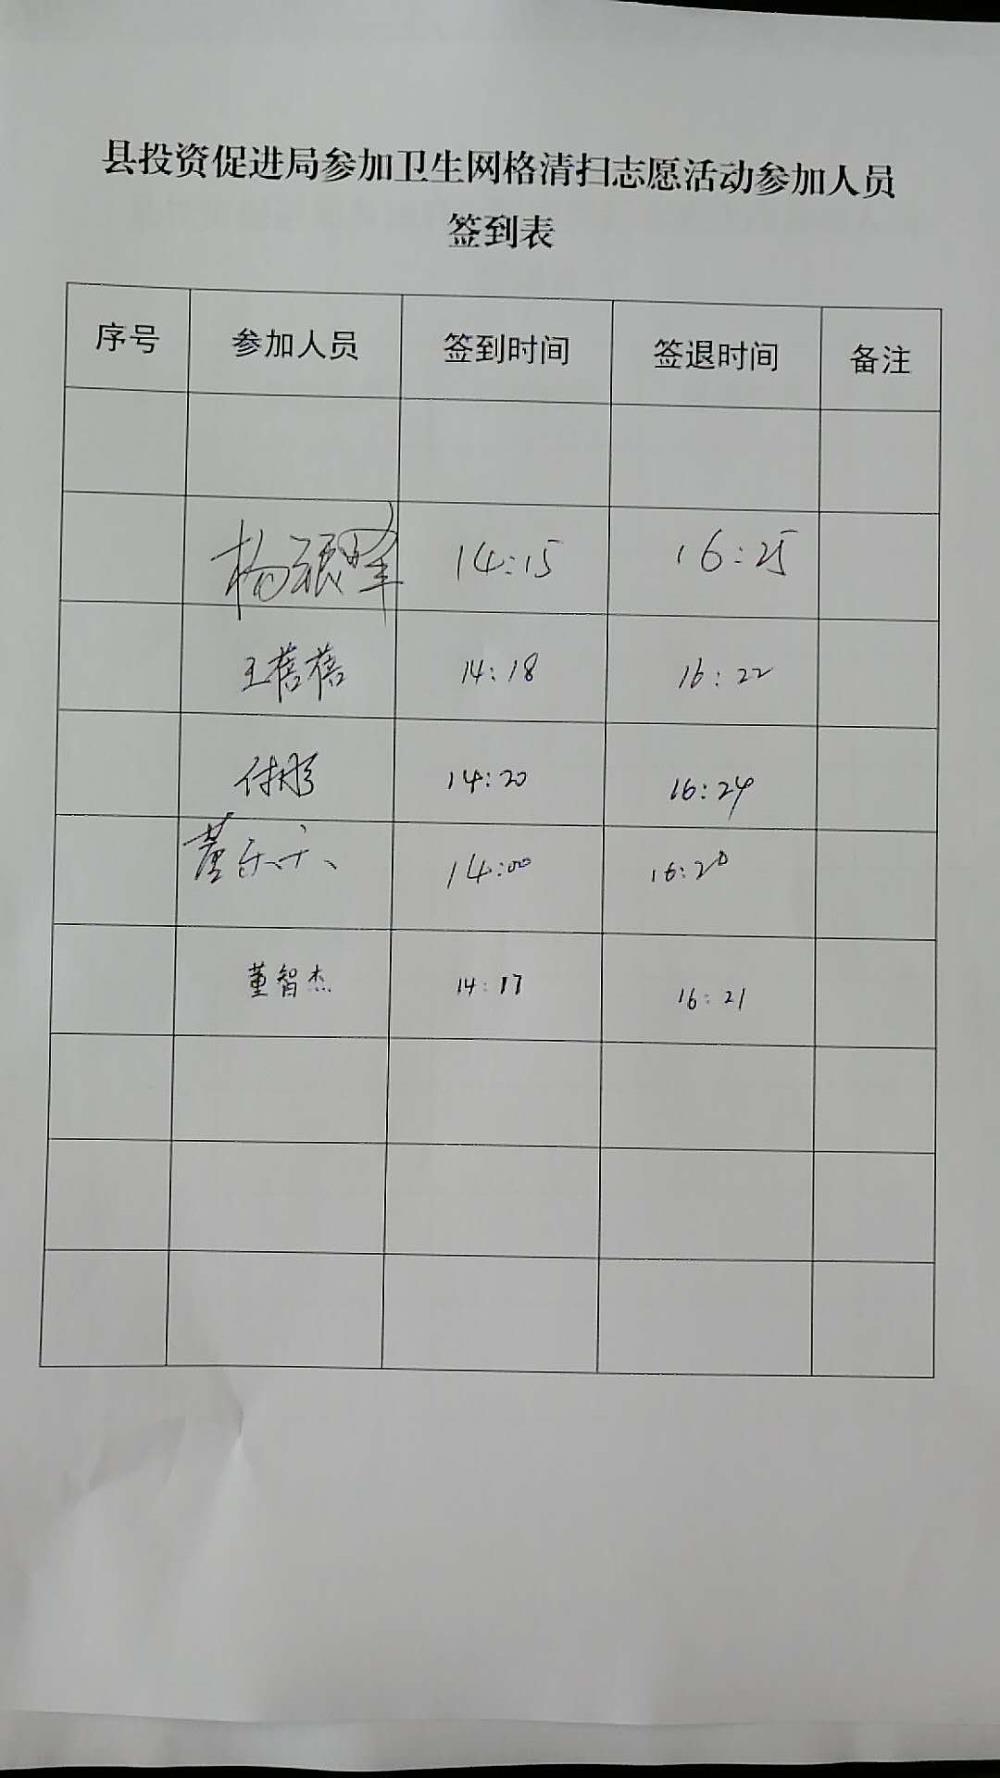 县投资促进局参加卫生网格清扫志愿活动参加人员
签到表
序号 参加人员 签到时间 签退时间 备注
杨 14:15 16:25
王蓓蓓 14:18 16:22
付彤 14:20 16:24
董 14:00 16:20
董智杰 14:17 16:21